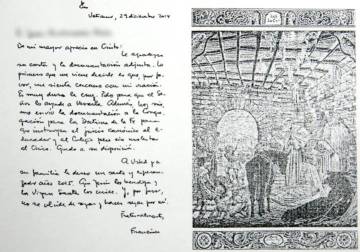 Vaticano, 29 diciembre 2014
De mi mayor aprecio en Cristo:
Le agradezco
su carta y la documentación adjunta. Lo
primero que me viene decirle es que, por fa-
vor, me sienta cercano con mi oración.
Es muy dura la cruz. Pido para que el Se-
ñor lo ayude a llevarla. Además, hoy mis-
mo envío la documentación a la Congre-
gación para la Doctrina de la Fe para
que instruyan el juicio canónico al e-
ducador y al Colegio pero sin molestar
al Chico. Quedo a su disposición.
A Usted y a
su familia le deseo un santo y esperan-
zador año 2015. Que Jesús los bendiga y
la Virgen Santa los cuide. Y, por favor,
no se olvide de rezar y hacer rezar por mí.
Fraternalmente,
Francisco